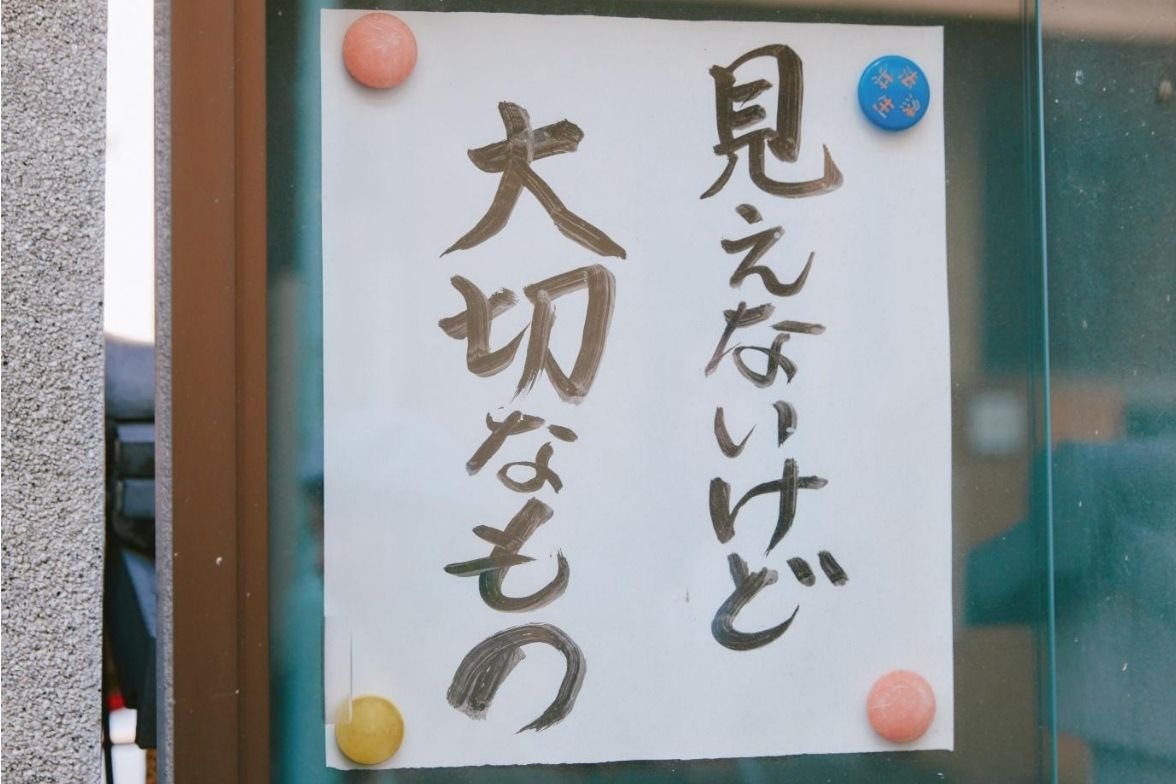 見えないけど
大切なもの